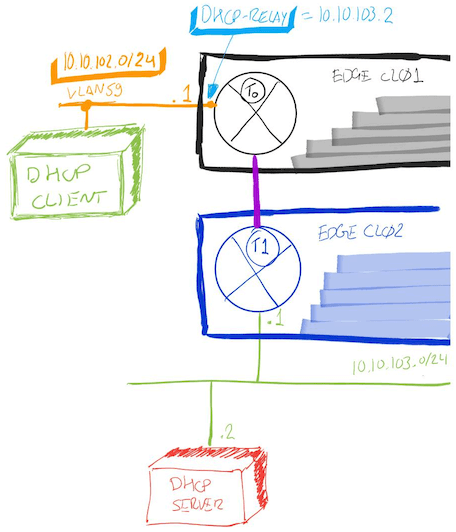 DHCP-RELAY = 10.10.103.2
10.10.102.0/24
VLAN59
.1
EDGE CL01
T0
DHCP
CLIENT
EDGE CL02
T1
.1
10.10.103.0/24
.2
DHCP
SERVER